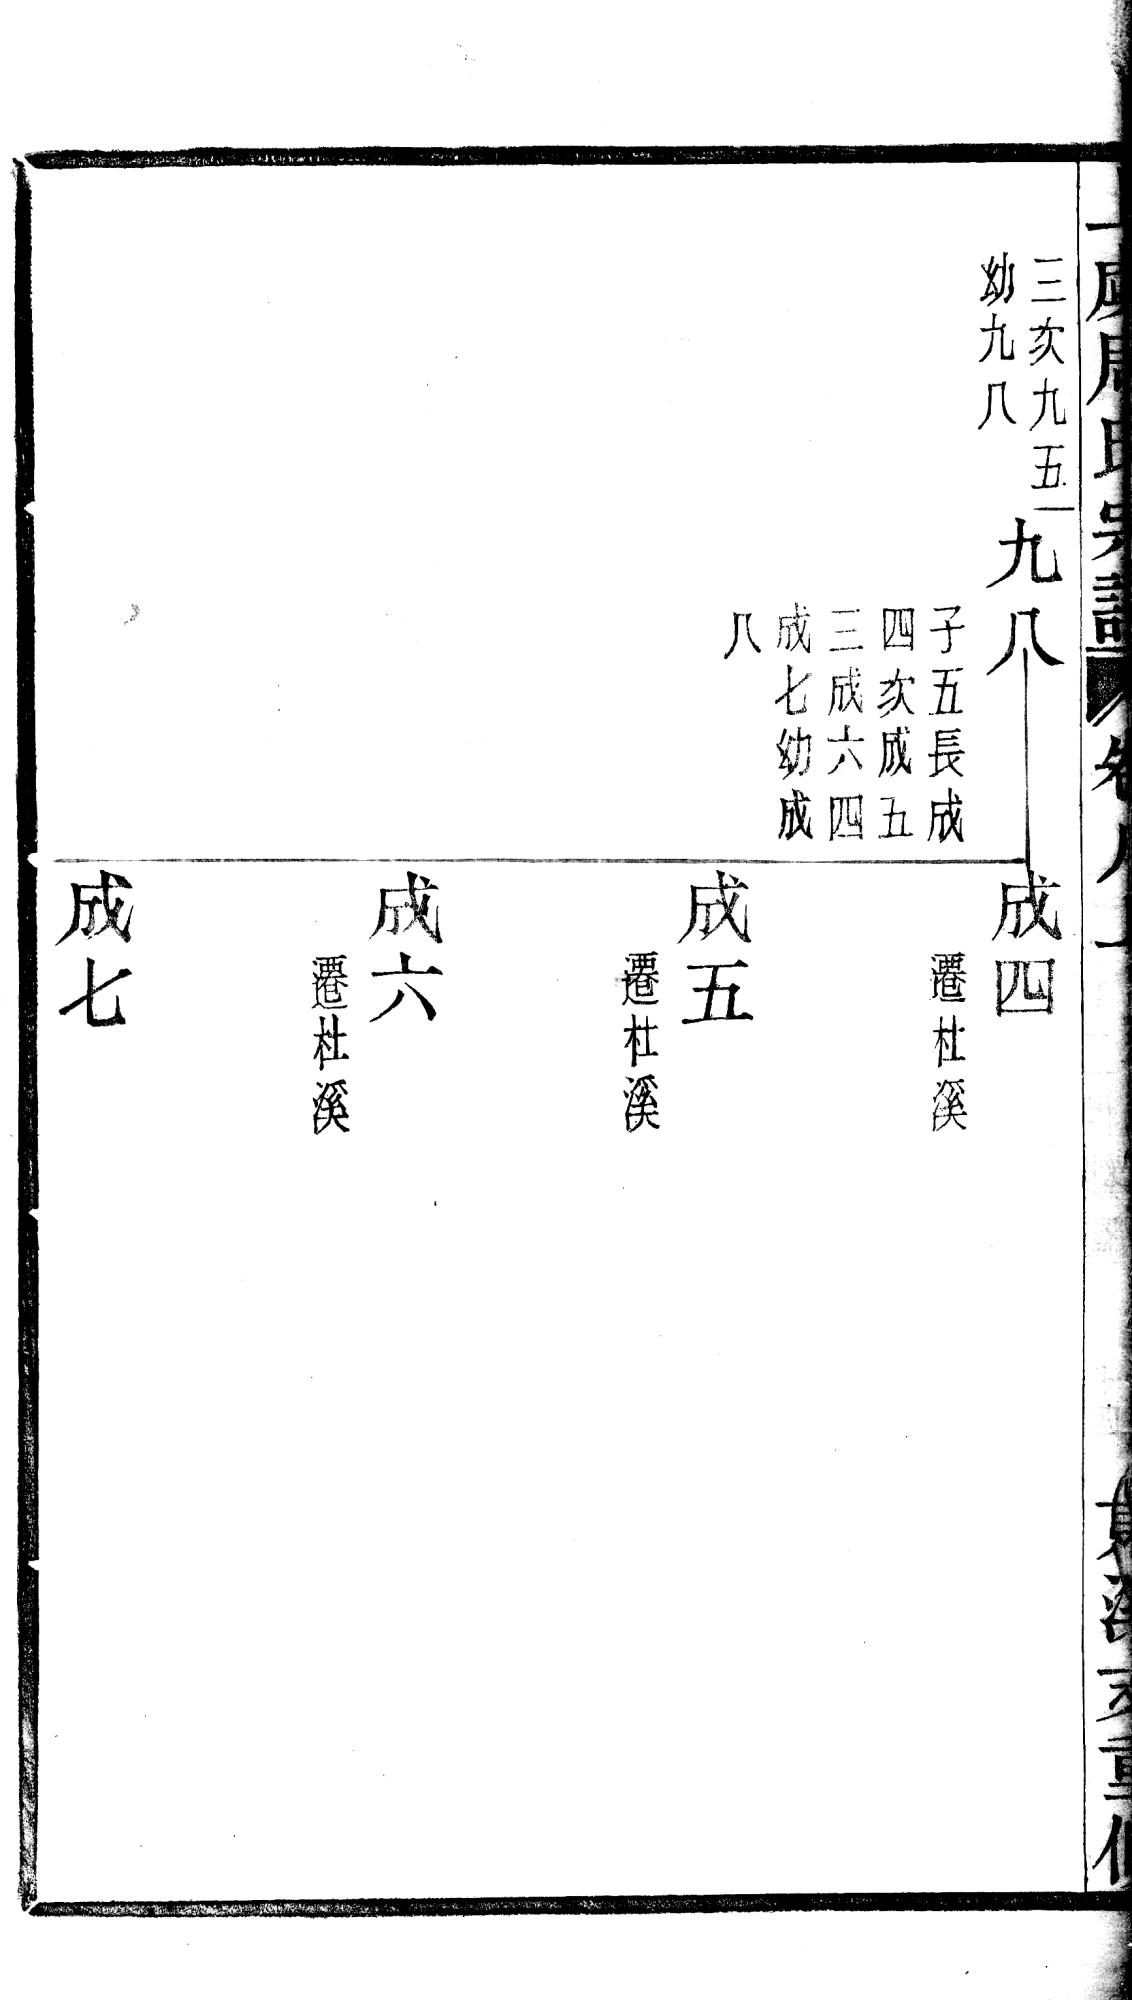 三次九五
幼九八
九八
子五長成
四次成五
三成六四
成七幼成
八
成四
遷杜溪
成五
遷杜溪
成六
遷杜溪
成七